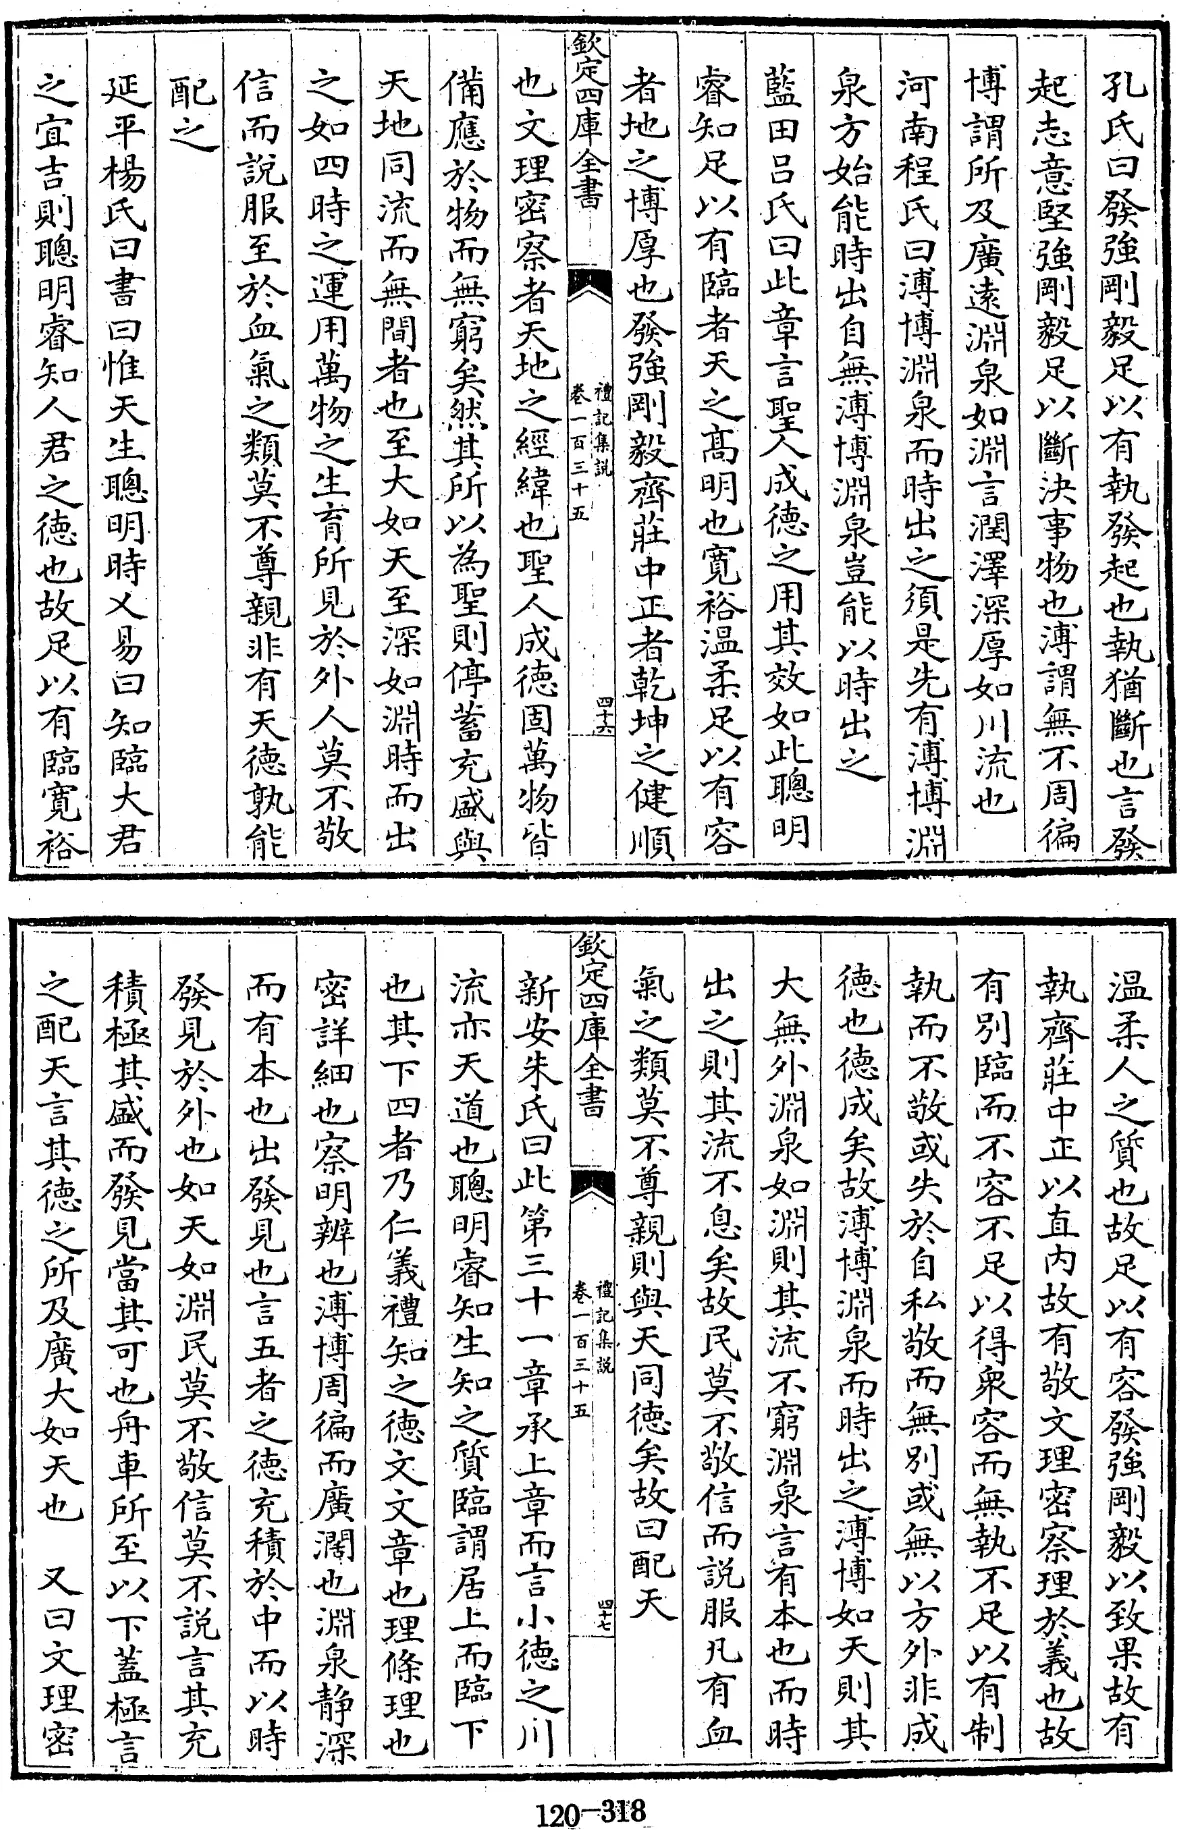 孔氏曰發強剛毅足以有執發起也執猶斷也言發
起志意堅強剛毅足以斷決事物也溥謂無不周徧
博謂所及廣遠淵泉如淵言潤澤深厚如川流也
河南程氏曰溥博淵泉而時出之須是先有溥博淵
泉方始能時出自無溥博淵泉豈能以時出之
藍田呂氏曰此章言聖人成德之用其效如此聰明
睿知足以有臨者天之高明也寛裕温柔足以有容
者地之博厚也發強剛毅齊莊中正者乾坤之健順
欽定四庫全書
禮記集説
卷一百三十五
四十六
也文理密察者天地之經緯也聖人成德固萬物皆
備應於物而無窮矣然其所以為聖則停蓄充盛與
天地同流而無間者也至大如天至深如淵時而出
之如四時之運用萬物之生育所見於外人莫不敬
信而說服至於血氣之類莫不尊親非有天德孰能
配之
延平楊氏曰書曰惟天生聰明時乂易曰知臨大君
之宜吉則聰明睿知人君之德也故足以有臨寛裕
温柔人之質也故足以有容發強剛毅以致果故有
執齊莊中正以直内故有敬文理密察理於義也故
有別臨而不容不足以得衆容而無執不足以有制
執而不敬或失於自私敬而無別或無以方外非成
德也德成矣故溥博淵泉而時出之溥博如天則其
大無外淵泉如淵則其流不窮淵泉言有本也而時
出之則其流不息矣故民莫不敬信而説服凡有血
氣之類莫不尊親則與天同德矣故曰配天
欽定四庫全書
禮記集説
卷一百三十五
四十七
新安朱氏曰此第三十一章承上章而言小德之川
流亦天道也聰明睿知生知之質臨謂居上而臨下
也其下四者乃仁義禮知之德文文章也理條理也
密詳細也察明辨也溥博周徧而廣濶也淵泉靜深
而有本也出發見也言五者之德充積於中而以時
發見於外也如天如淵民莫不敬信莫不説言其充
積極其盛而發見當其可也舟車所至以下蓋極言
之配天言其德之所及廣大如天也　又曰文理密
120-318